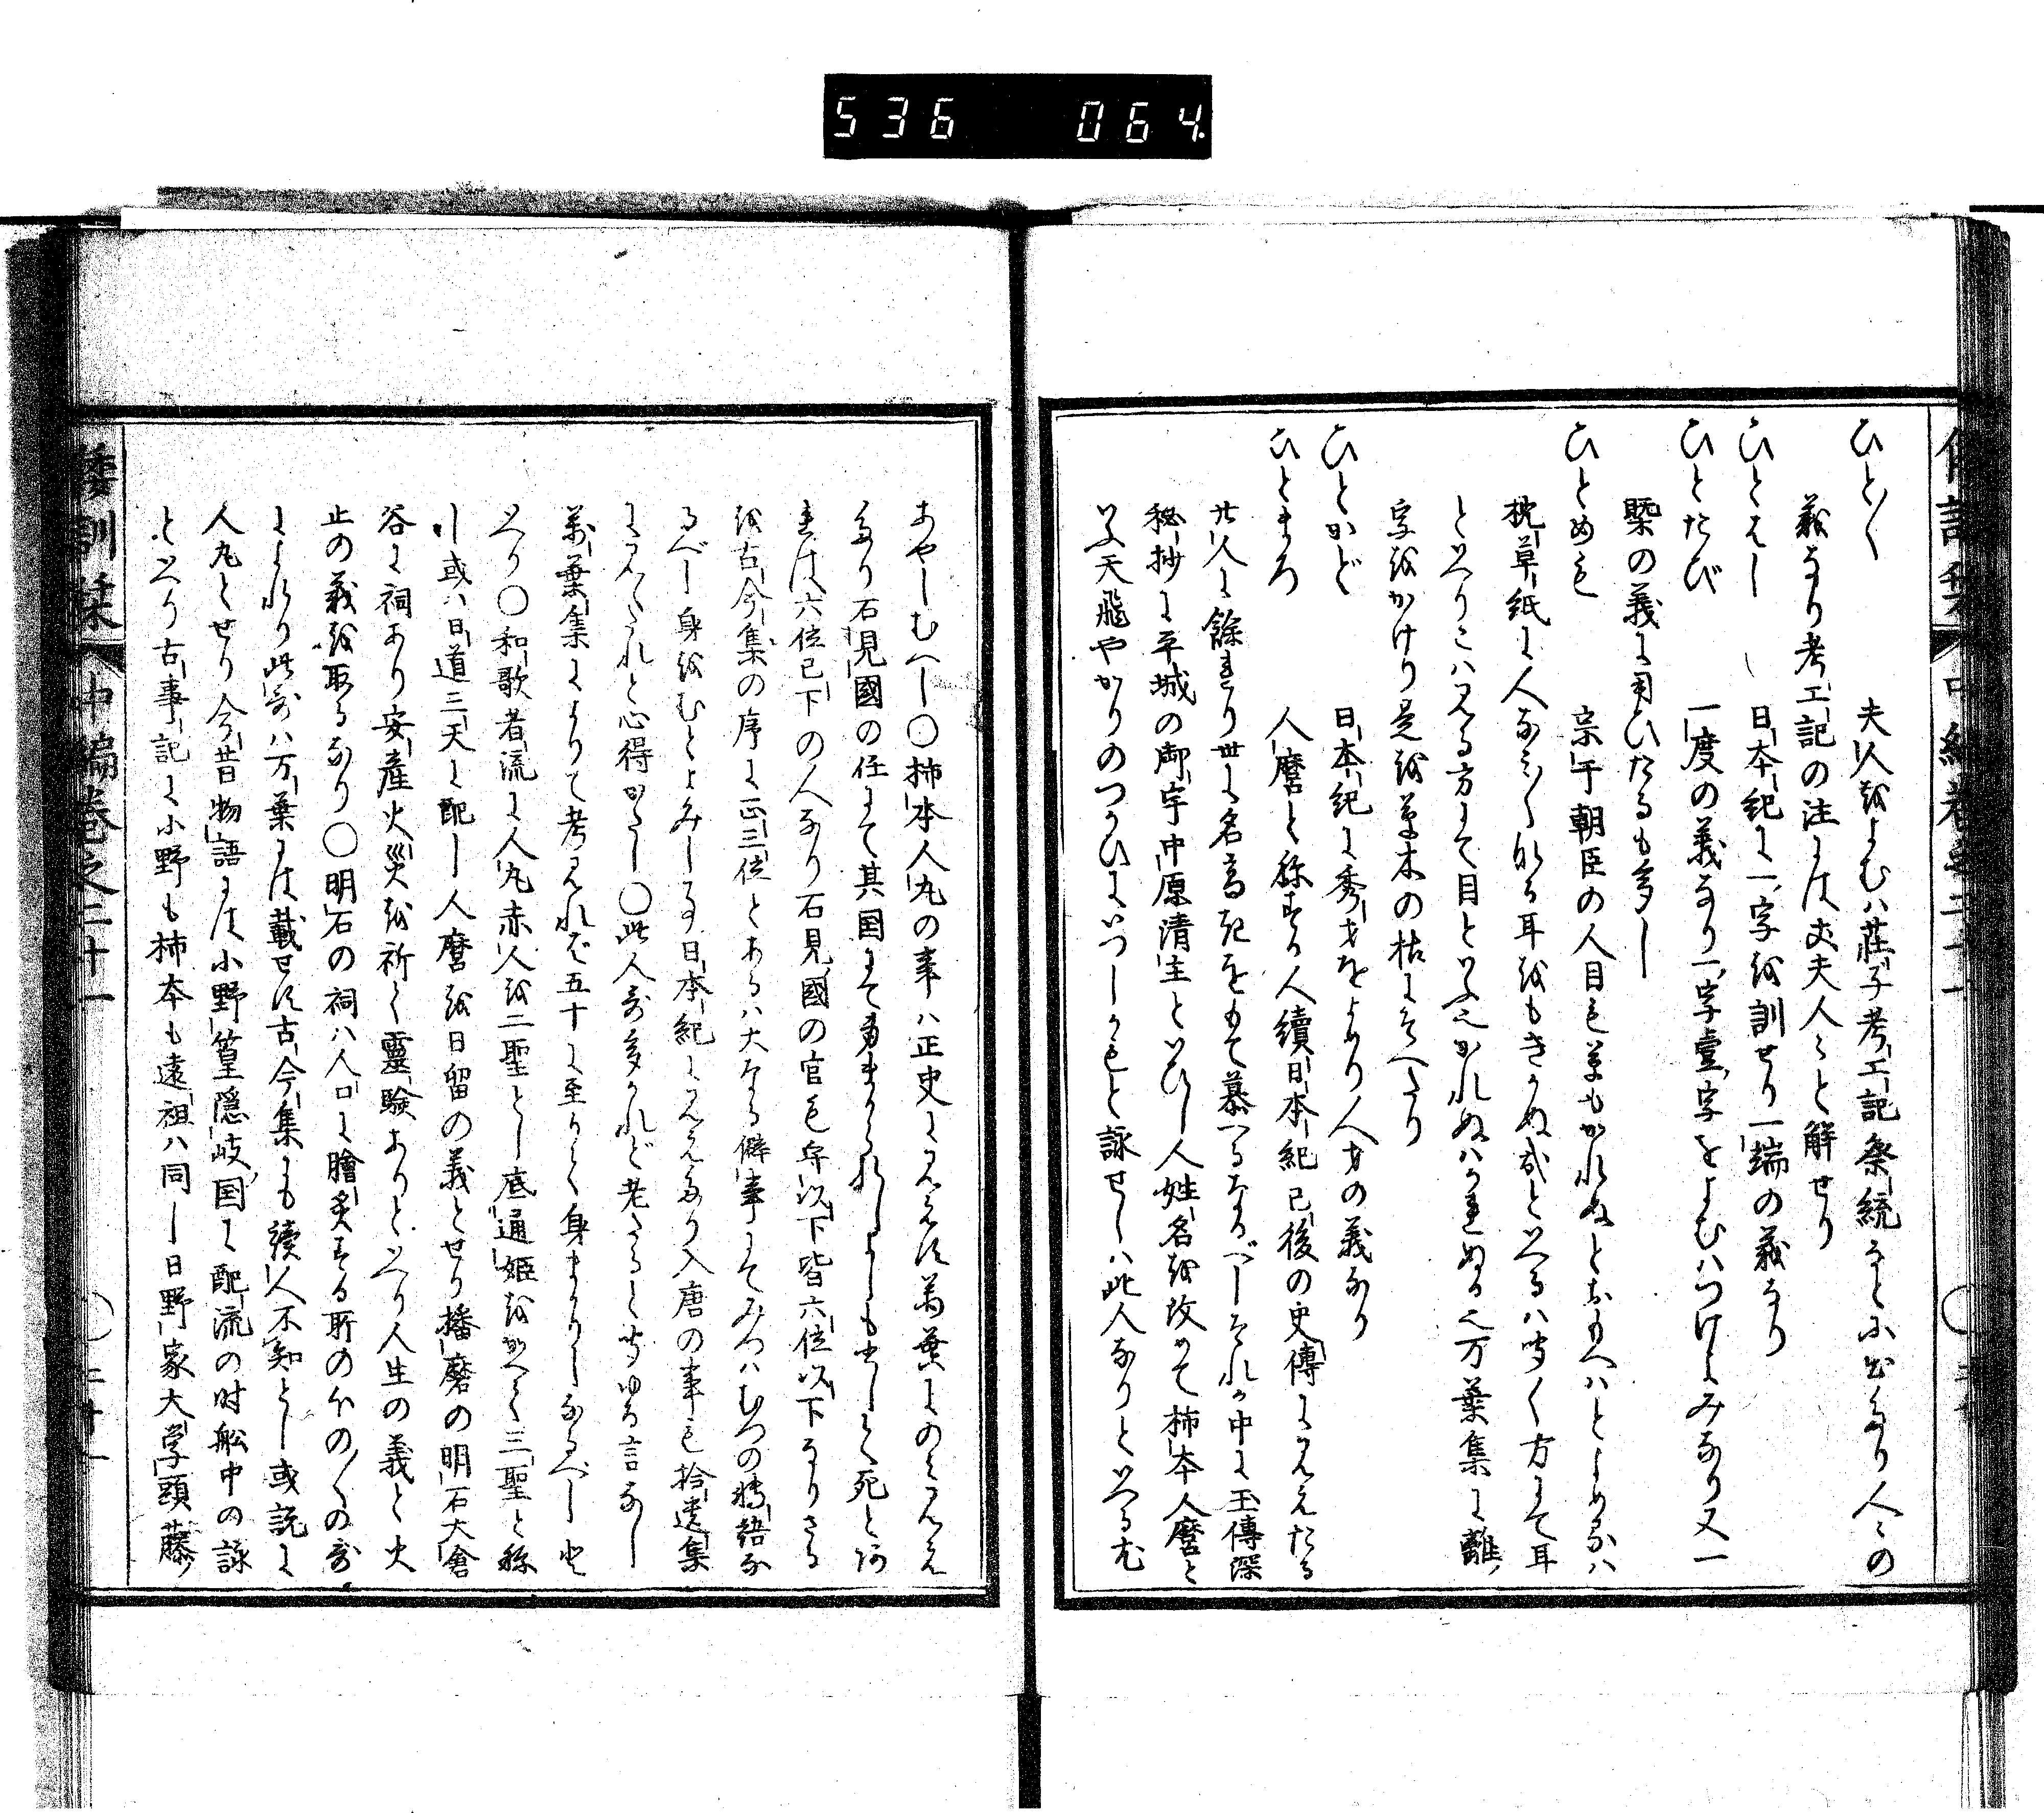 536 064
倭訓栞 中編巻之二十一
ひと〳〵 夫人をよむハ荘子考工記祭統なとに出たり人々の
義なり考工記の注には丈夫人々と解せり
ひとはし 日本紀に一字を訓せり一端の義なり
ひとたび 一度の義なり一字壹字をよむハつけよみなり又一
槩の義に用ひたるも多し
ひとめも 宗于朝臣の人目も草もかれぬとおもへハとよめるハ
枕草紙に人なみ〳〵なる耳をもきかぬ哉といへるハ聞く方にて耳
といへりこハ見る方にて目といふ也かれぬハかれぬる也万葉集に離
字をかけり是を草木の枯にそへたり
ひとかど 日本紀に秀才をよめり人才の義なり
ひとまろ 人麿と称する人續日本紀已後の史傳に見えたる
廿人に餘まり世に名高きをもて慕へるなるべしそれか中に玉傳深
秘抄に平城の御宇中原清主といひし人姓名を改めて柿本人麿と
いふ天飛やかりのつかひにいつしかもと詠せしハ此人なりといへるも
あやしむへし○柿本人丸の事ハ正史に見えす萬葉にのミ見え
たり石見國の任にて其国にて身まかられしよしも出しく死と阿
れは六位已下の人なり石見國の官も守以下皆六位以下なりさる
を古今集の序に正三位とあるハ大なる僻事にてみつハむつの轉語な
るべし身をむとよみし事日本紀に見えたり入唐の事も拾遺集
に見えたれと心得かたし○此人哥多かれど老たると聞ゆる言なし
萬葉集によりて考ふれば五十に至らて身まかりしなるべしと
いへり○和歌者流に人丸赤人を二聖とし底通姫をかへて三聖と称
し或ハ日道三天に配し人麿を日留の義とせり播磨の明石大倉
谷に祠あり安産火災を祈て靈驗ありといへり人生の義と火
止の義を取るなり○明石の祠ハ人口に膾炙する所のほの〳〵の哥
によれり此哥ハ万葉には載せす古今集にも續人不知とし或説に
人丸とせり今昔物語には小野篁隠岐国に配流の時舩中の詠
といへり古事記に小野も柿本も遠祖ハ同し日野家大学頭藤
倭訓栞 中編巻之二十一 ○二十一